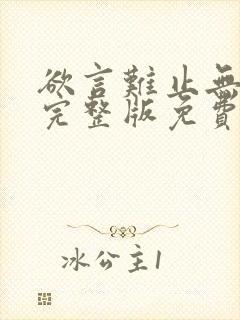 欲言難止無
完整版免費
冰公主1